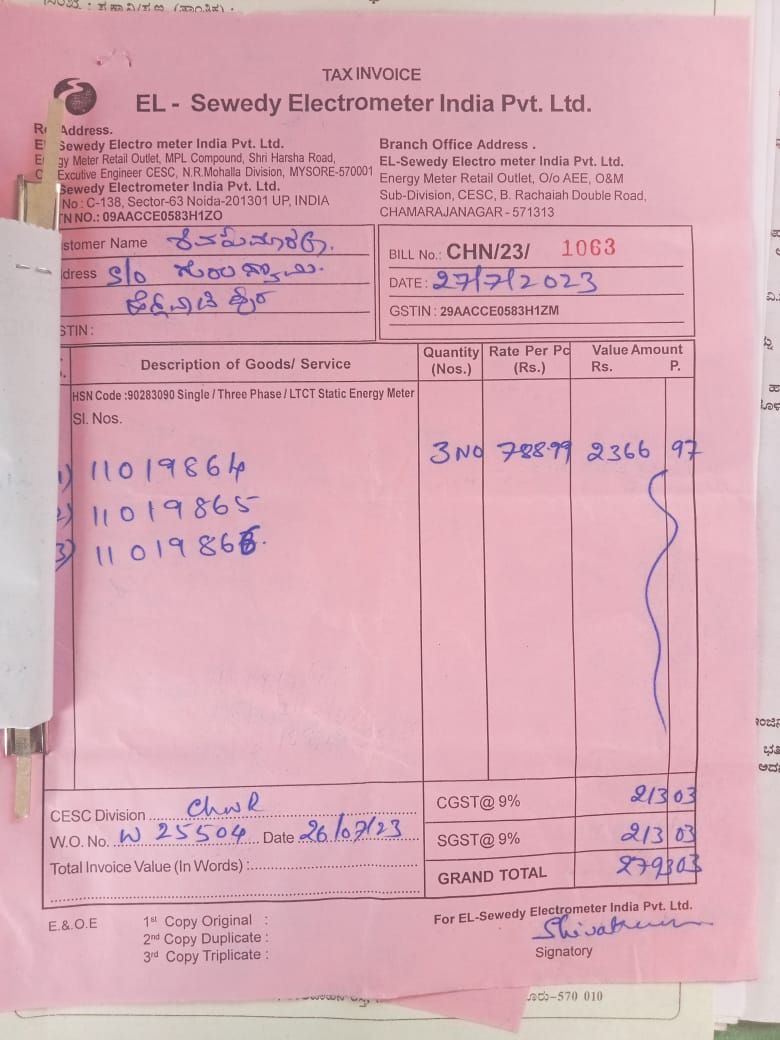 TAX INVOICE
EL - Sewedy Electrometer India Pvt. Ltd.
Address.
Sewedy Electro meter India Pvt. Ltd.
gy Meter Retail Outlet, MPL Compound, Shri Harsha Road,
Excutive Engineer CESC, N.R.Mohalla Division, MYSORE-570001
Sewedy Electrometer India Pvt. Ltd.
No : C-138, Sector-63 Noida-201301 UP, INDIA
TN NO.: 09AACCE0583H1ZO
Branch Office Address .
EL-Sewedy Electro meter India Pvt. Ltd.
Energy Meter Retail Outlet, O/o AEE, O&M
Sub-Division, CESC, B. Rachaiah Double Road,
CHAMARAJANAGAR - 571313
stomer Name
dress S/O
STIN :
BILL No.: CHN/23/ 1063
DATE : 27/7/2023
GSTIN : 29AACCE0583H1ZM
Description of Goods/ Service Quantity (Nos.) Rate Per Pc (Rs.) Value Amount Rs. P.
HSN Code :90283090 Single / Three Phase / LTCT Static Energy Meter
Sl. Nos.
3 NO 788.99 2366 97
1) 11019864
2) 11019865
3) 11019866.
CESC Division ChNR
W.O. No. W 25504 Date 26/07/23
Total Invoice Value (In Words) :
CGST@ 9% 213 03
SGST@ 9% 213 03
GRAND TOTAL 2793 03
E.&.O.E
1st Copy Original :
2nd Copy Duplicate :
3rd Copy Triplicate :
For EL-Sewedy Electrometer India Pvt. Ltd.
Signatory
ರು-570 010